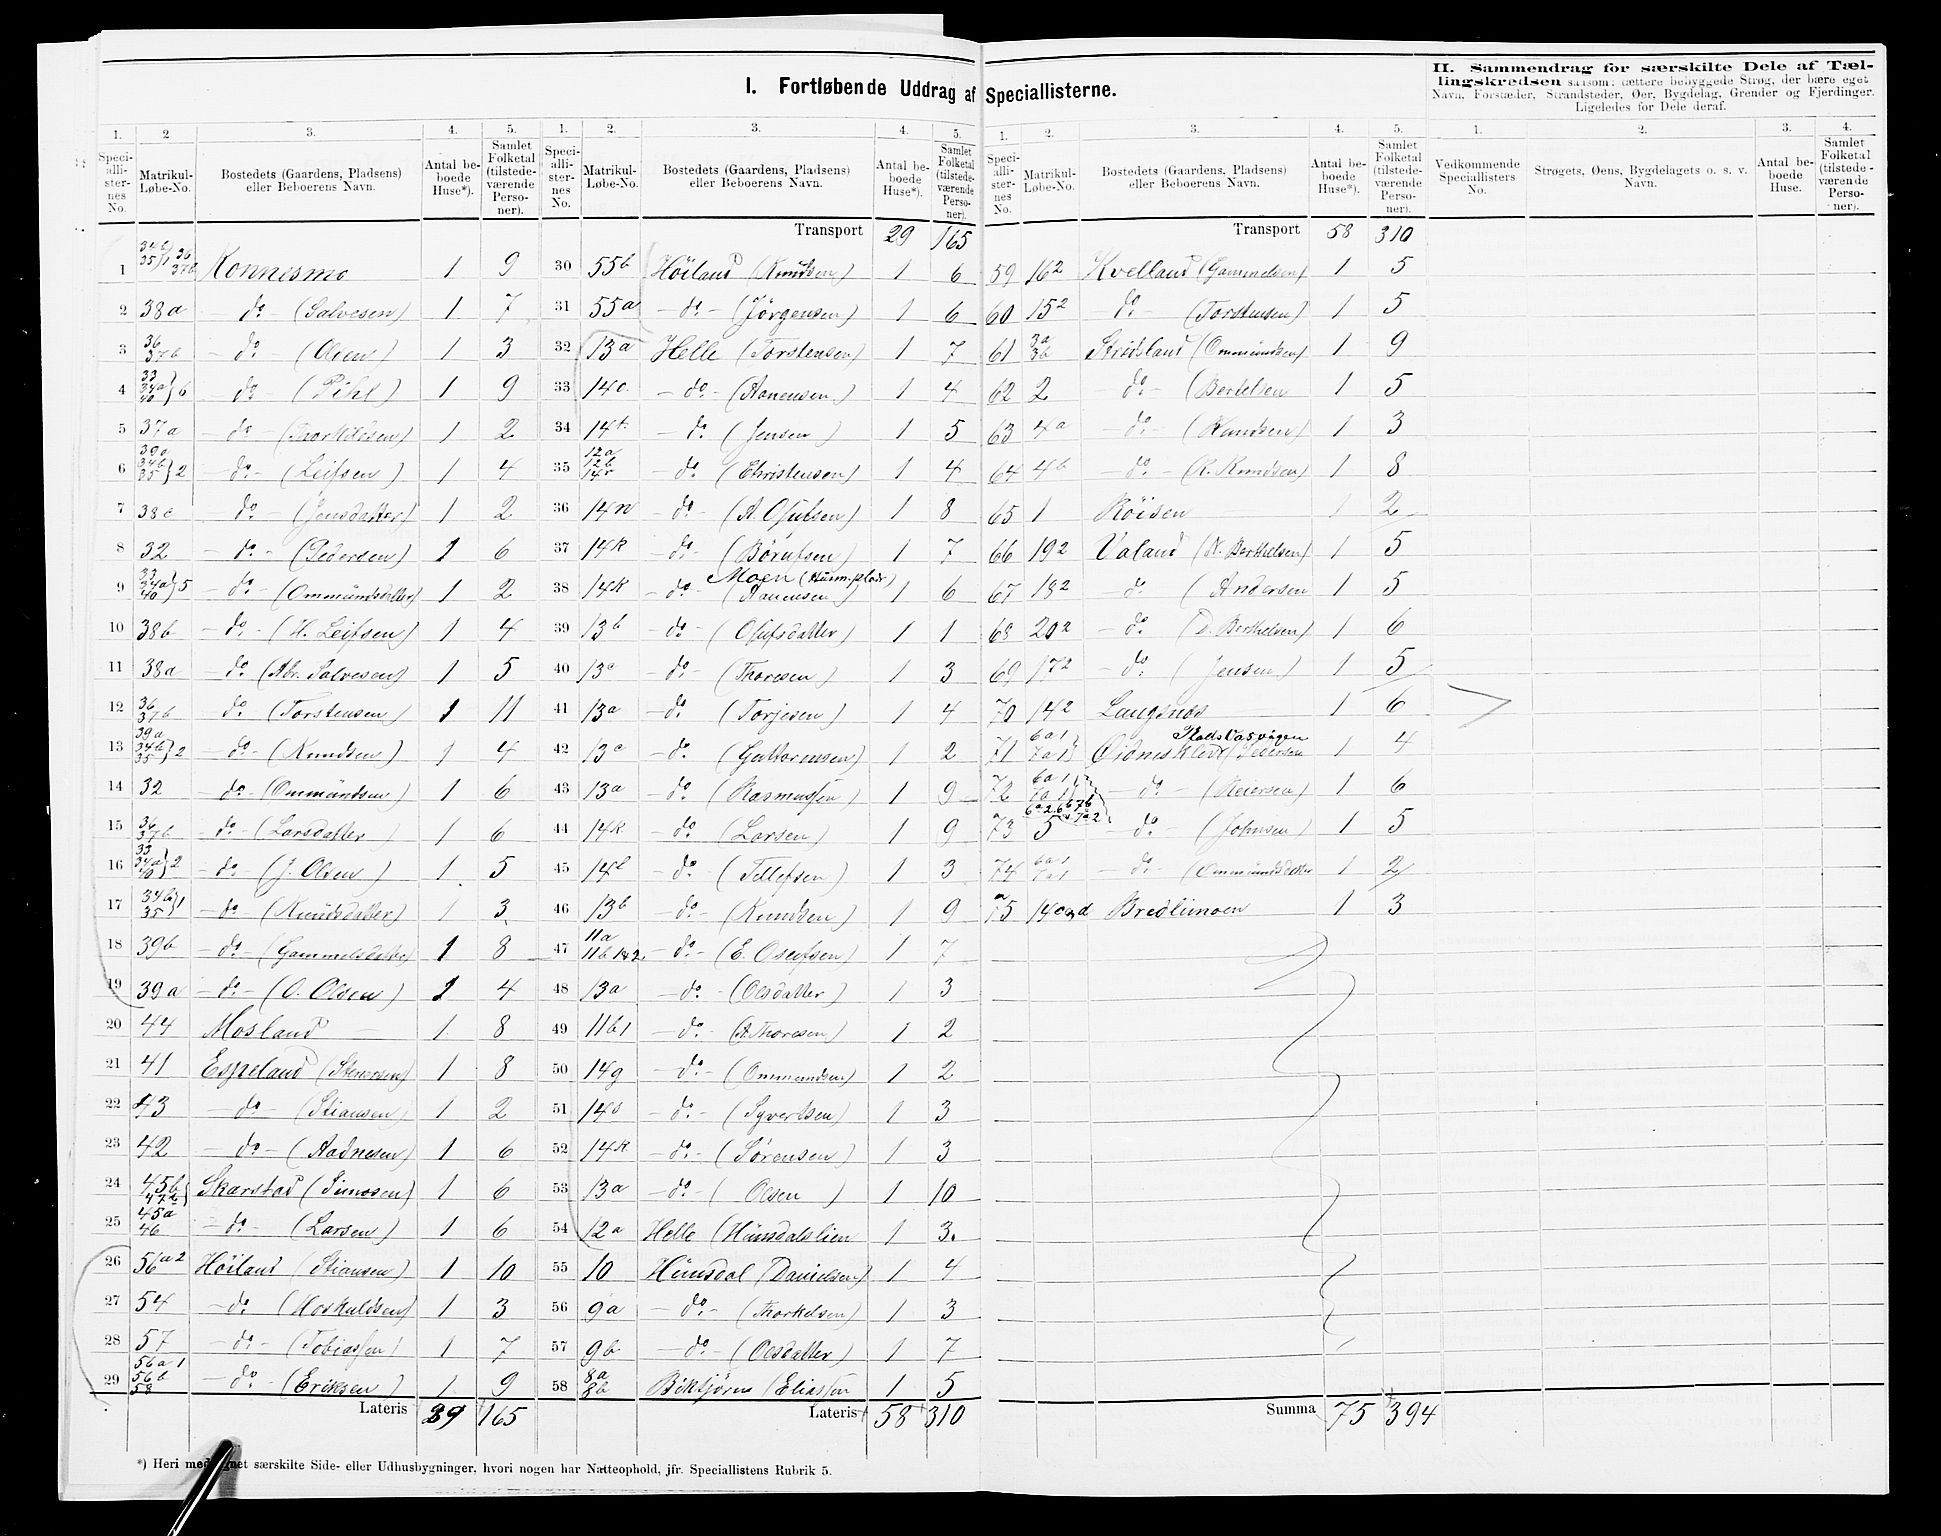 I. Fortløbende Uddrag af Speciallisterne.
II. Sammendrag for særskilte Dele af Tæl-
lingskredsen saasom: tættere bebyggede Strøg, der bære eget
Navn, Forstæder, Strandsteder, Øer, Bygdelag, Grender og Fjerdinger.
Ligeledes for Dele deraf.
1. Speci-alli-ster-nes No. 2 Matrikul-Løbe-No. 3. Bostedets (Gaardens, Pladsens) eller Beboerens Navn. 4. Antal be-boede Huse*). 5. Samlet Folketal (tilstede-værende Perso-ner).
1 34b 35}1 36 37b Konnesmo 1 9
2 38a – do – (Salvesen) 1 7
3 36 37b – do – (Olsen) 1 3
4 33 34a 40}6 – do – (Pihl) 1 9
5 37a – do – (Thorkildsen) 1 2
6 39a 34b 35}2 – do – (Leifsen) 1 4
7 38c – do – (Jensdatter) 1 2
8 32 – do – (Pedersen) 1 6
9 33 34a 40}5 – do – (Ommundsdatter) 1 2
10 38b – do – (H. Leifsen) 1 4
11 38a – do (Abr. Salvesen) 1 5
12 36 37b – do – (Torstensen) 1 11
13 39a 34b 35}2 – do – (Knudsen) 1 4
14 32 – do – (Ommundsen) 1 6
15 36 37b – do – (Larsdatter 1 6
16 33 34a 40}2 – do – (J. Olsen) 1 5
17 34b 35}1 – do – (Knudsdatter) 1 3
18 39b – do – (Gammelsdatter) 1 8
19 39a – do – (O. Olsen) 1 4
20 44 Mosland 1 8
21 41 Espeland (Stenersen) 1 8
22 43 – do – (Stiansen) 1 2
23 42 – do – (Aadnesen) 1 6
24 45b 47b Skarstad (Simosen) 1 6
25 45a 46 – do – (Larsen) 1 6
26 56a2 Höiland (Stiansen) 1 10
27 54 – do – (Hoskuldsen) 1 3
28 57 – do – (Tobiassen) 1 7
29 56a1 56b 58 – do – (Eriksen) 1 9
Lateris 29 165
1. Speci-alli-ster-nes No. 2. Matrikul-Løbe-No. 3. Bostedets (Gaardens, Pladsens) eller Beboerens Navn. 4. Antal be-boede Huse*). 5. Samlet Folketal (tilstede-værende Perso-ner).
Transport 29 165
30 55b Höiland (Knudsen) 1 6
31 55a – do – (Jörgensen) 1 6
32 13a Helle (Torstensen) 1 7
33 14c – do – (Aanensen) 1 4
34 14t – do (Jensen) 1 5
35 12a 12b 14r – do (Christensen) 1 4
36 14n – do – (A. Osufsen) 1 8
37 14k – do – (Börufsen) 1 7
Moen (Husm.plads)
38 14k – do – (Aanensen) 1 6
39 13b – do – (Osufsdatter) 1 1
40 13c – do (Thoresen) 1 3
41 13a – do (Torjesen) 1 4
42 13c – do (Guttormsen) 1 2
43 13a – do (Rasmussen) 1 9
44 14k – do (Larsen) 1 9
45 14l – do (Tellefsen) 1 3
46 13b – do – (Knudsen) 1 9
47 11a 11b 1&2 – do – (E. Osufsen) 1 7
48 13a – do – (Olsdatter) 1 3
49 11b1 – do – (A Thoresen) 1 2
50 14g – do – (Ommundsen) 1 2
51 14s – do – (Syvertsen) 1 3
52 14k – do – (Sörensen) 1 3
53 13a – do – (Olsen) 1 10
54 12a Helle (Hunsdalslien 1 3
55 10 Hunsdal (Danielsen) 1 4
56 9a – do – (Thorkelsen) 1 3
57 9b – do – (Olsdatter) 1 7
58 8a 8b (Eliassen 1 5
Lateris 58 310
1. Speci-alli-ster-nes No. 2. Matrikul-Løbe-No. 3. Bostedets (Gaardens, Pladsens) eller Beboerens Navn. 4. Antal be-boede Huse*). 5. Samlet Folketal (tilstede-værende Perso-ner).
Transport 58 310
59 162 Kvelland (Gammelsen) 1 5
60 152 do – (Torstensen) 1 5
61 3a 3b (Ommundsen) 1 9
62 2 – do – (Bertelsen 1 5
63 4a – do – (Knudsen) 1 3
64 4b – do – (R. Knudsen) 1 8
65 1 Röisen 1 2
66 192 Valand (N. Berthelsen) 1 5
67 182 – do (Andersen 1 5
68 202 – do (D. Berthelsen) 1 6
69 172 – do (Jensen) 1 5
70 142 Langsnes 1 6
71 6a1 7a1 (Pedersen 1 4
72 6a1 7a1 – do – (Reiersen) 1 6
73 5 – do – (Johnsen) 1 5
74 6a1 7a1 – do – (Ommundsdatter 1 2
75 Bredlimoen 1 3
Summa 75 394
1. Vedkommende Speciallisters No. 2. Strøgets, Øens, Bygdelagets o. s. v. Navn. 3. Antal be-boede Huse. 4. Samlet Folketal (tilstede-værende Perso-ner).
*) Heri særskilte Side- eller Udhusbygninger, hvori nogen har Natteophold, jfr. Speciallistens Rubrik 5.